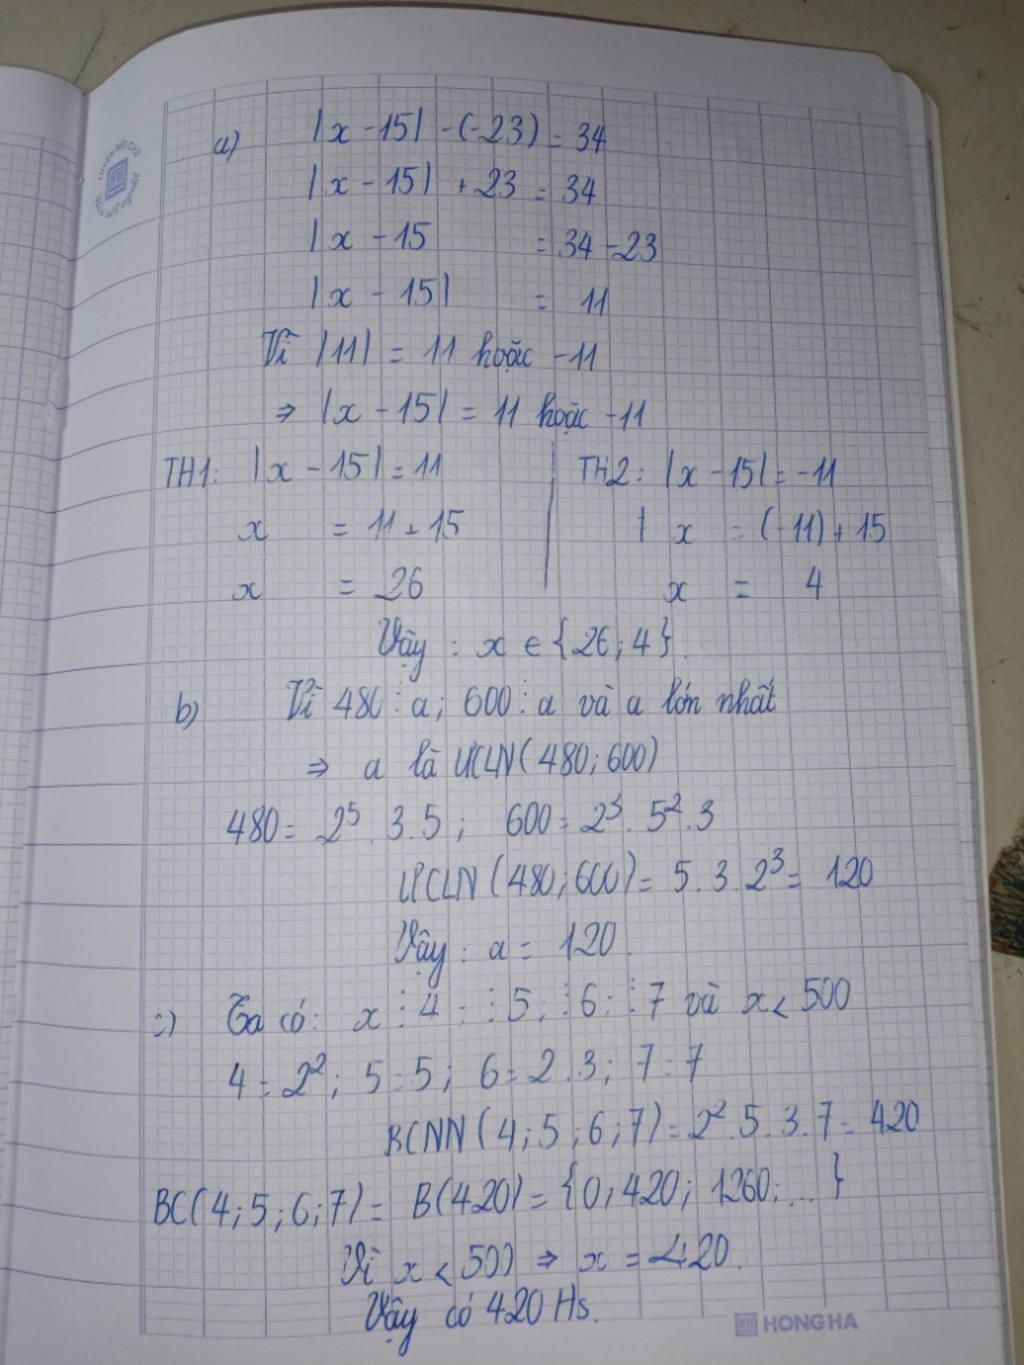 a) |x - 15| - (-23) = 34
|x - 15| + 23 = 34
|x - 15 = 34 - 23
|x - 15| = 11
Vì |11| = 11 hoặc -11
⇒ |x - 15| = 11 hoặc -11
TH1: |x - 15| = 11
x = 11 + 15
x = 26
TH2: |x - 15| = -11
x = (-11) + 15
x = 4
Vậy : x ∈ {26; 4}.
b) Vì 480 ⋮ a; 600 ⋮ a và a lớn nhất
⇒ a là ƯCLN(480; 600)
480 = 2⁵ . 3 . 5 ; 600 = 2³ . 5² . 3
ƯCLN (480; 600) = 5 . 3 . 2³ = 120
Vậy : a = 120.
c) Ta có: x ⋮ 4 ; ⋮ 5; ⋮ 6; ⋮ 7 và x < 500
4 = 2²; 5 = 5; 6 = 2 . 3; 7 = 7
BCNN (4; 5; 6; 7) = 2² . 5 . 3 . 7 = 420
BC(4; 5; 6; 7) = B(420) = {0; 420; 1260; ... }
Vì x < 500 ⇒ x = 420.
Vậy có 420 Hs.
HONG HA